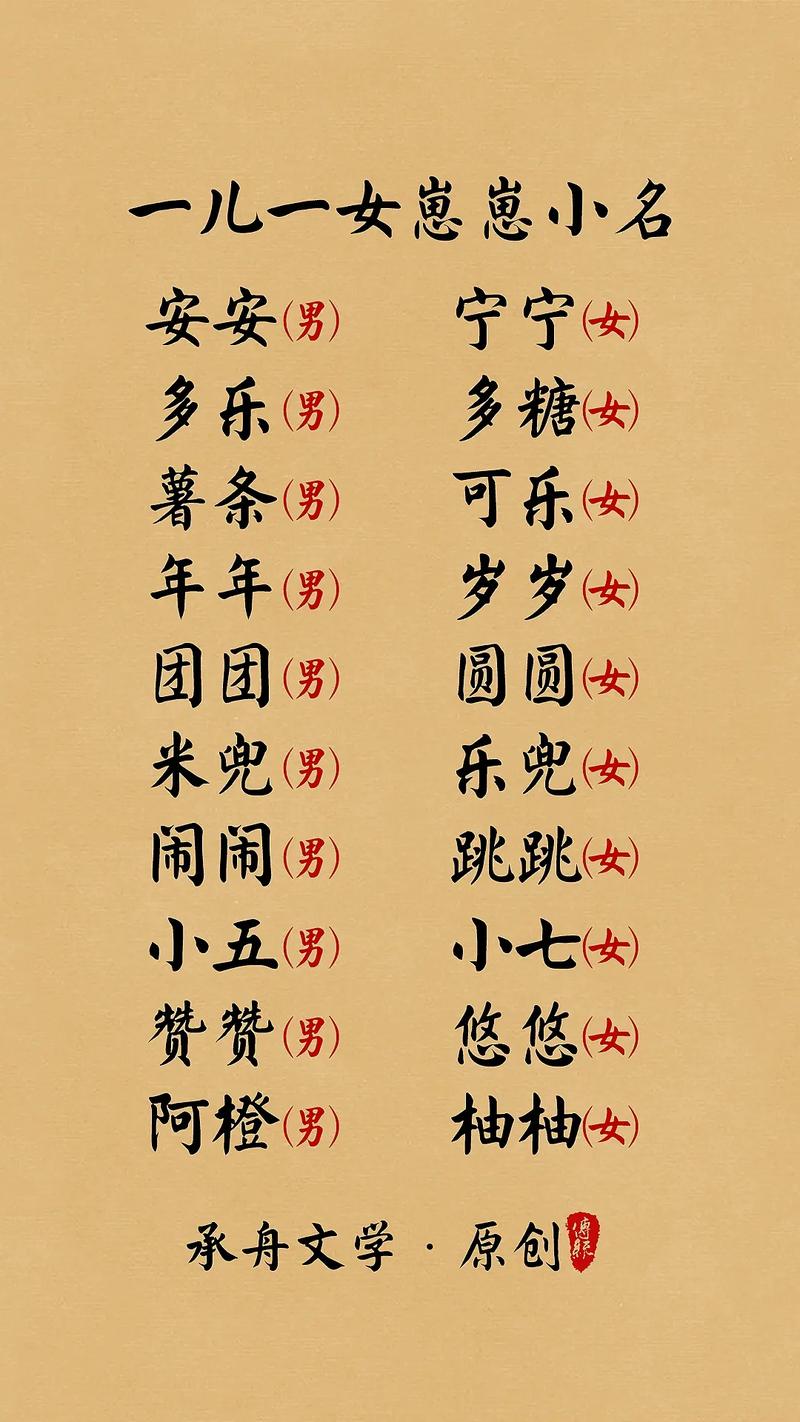 一儿一女崽崽小名
安安(男) 宁宁(女)
多乐(男) 多糖(女)
薯条(男) 可乐(女)
年年(男) 岁岁(女)
团团(男) 圆圆(女)
米兜(男) 乐兜(女)
闹闹(男) 跳跳(女)
小五(男) 小七(女)
赞赞(男) 悠悠(女)
阿橙(男) 柚柚(女)
承舟文学·原创
傳統